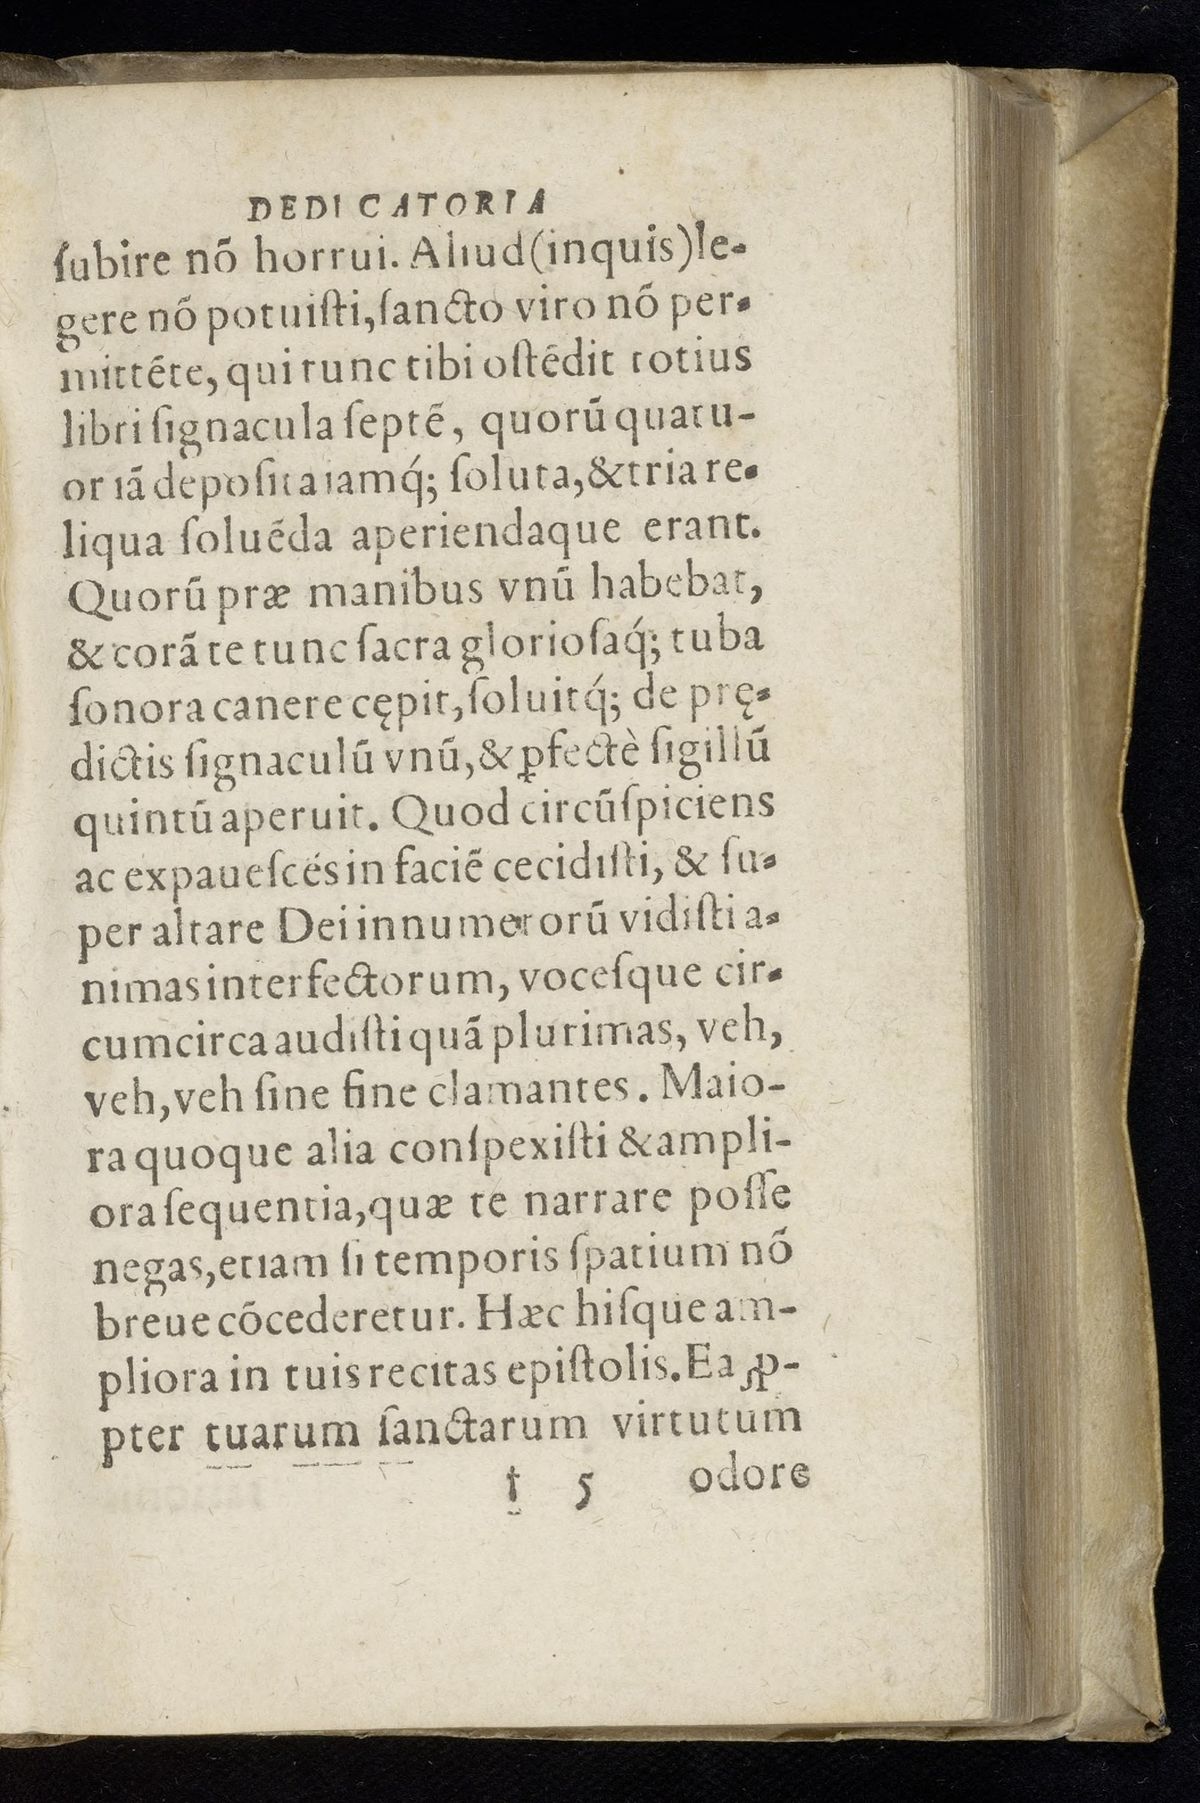 DEDICATORIA
ſubire nõ horrui. Aliud(inquis)le-
gere nõ potuiſti, ſancto viro nõ per-
mittẽte, qui tunc tibi oſtẽdit totius
libri ſignacula ſeptẽ, quorũ quatu-
or iã depoſita iamq́; ſoluta, & tria re-
liqua ſoluẽda aperiendaque erant.
Quorũ præ manibus vnũ habebat,
& corã te tunc ſacra glorioſaq́; tuba
ſonora canere cępit, ſoluitq́; de prę-
dictis ſignaculũ vnũ, & ꝑfectè ſigillũ
quintũ aperuit. Quod circũſpiciens
ac expaueſcẽs in faciẽ cecidiſti, & ſu-
per altare Dei innumerorũ vidiſti a-
nimas interfectorum, voceſque cir-
cumcirca audiſti quã plurimas, veh,
veh, veh ſine fine clamantes. Maio-
ra quoque alia conſpexiſti & ampli-
ora ſequentia, quæ te narrare poſſe
negas, etiam ſi temporis ſpatium nõ
breue cõcederetur. Hæc hiſque am-
pliora in tuis recitas epiſtolis. Ea ꝓ-
pter tuarum ſanctarum virtutum
† 5 odore